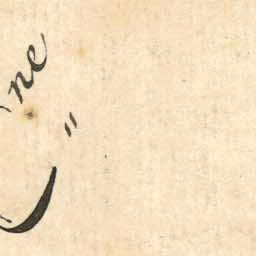 ne
"